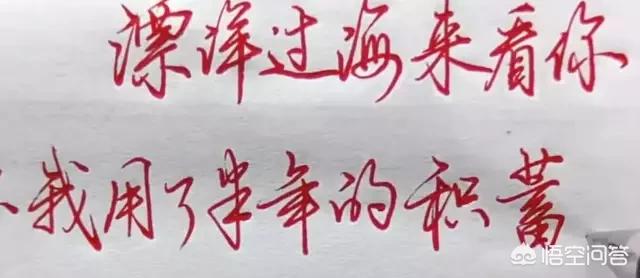 漂洋过海来看你
我用了半年的积蓄
悟空问答